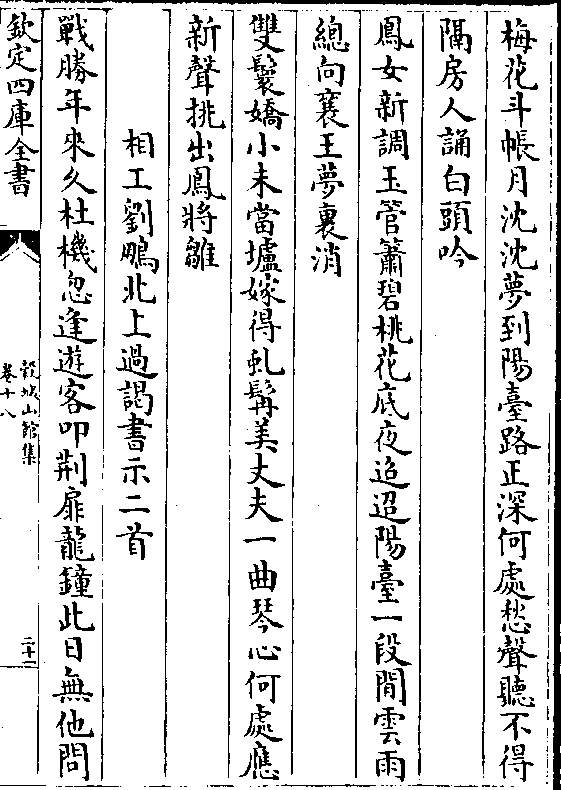 梅花斗帳月沈沈夢到陽臺路正深何處愁聲聽不得
隔房人誦白頭吟
鳳女新調玉管簫碧桃花底夜迢迢陽臺一段閒雲雨
總向襄王夢裏消
雙鬟嬌小未當壚嫁得虬髯美丈夫一曲琴心何處應
新聲挑出鳳將雛
相工劉鵰北上過謁書示二首
戰勝年來久杜機忽逢遊客叩荆扉龍鐘此日無他問
欽定四庫全書
穀城山館集
卷十八